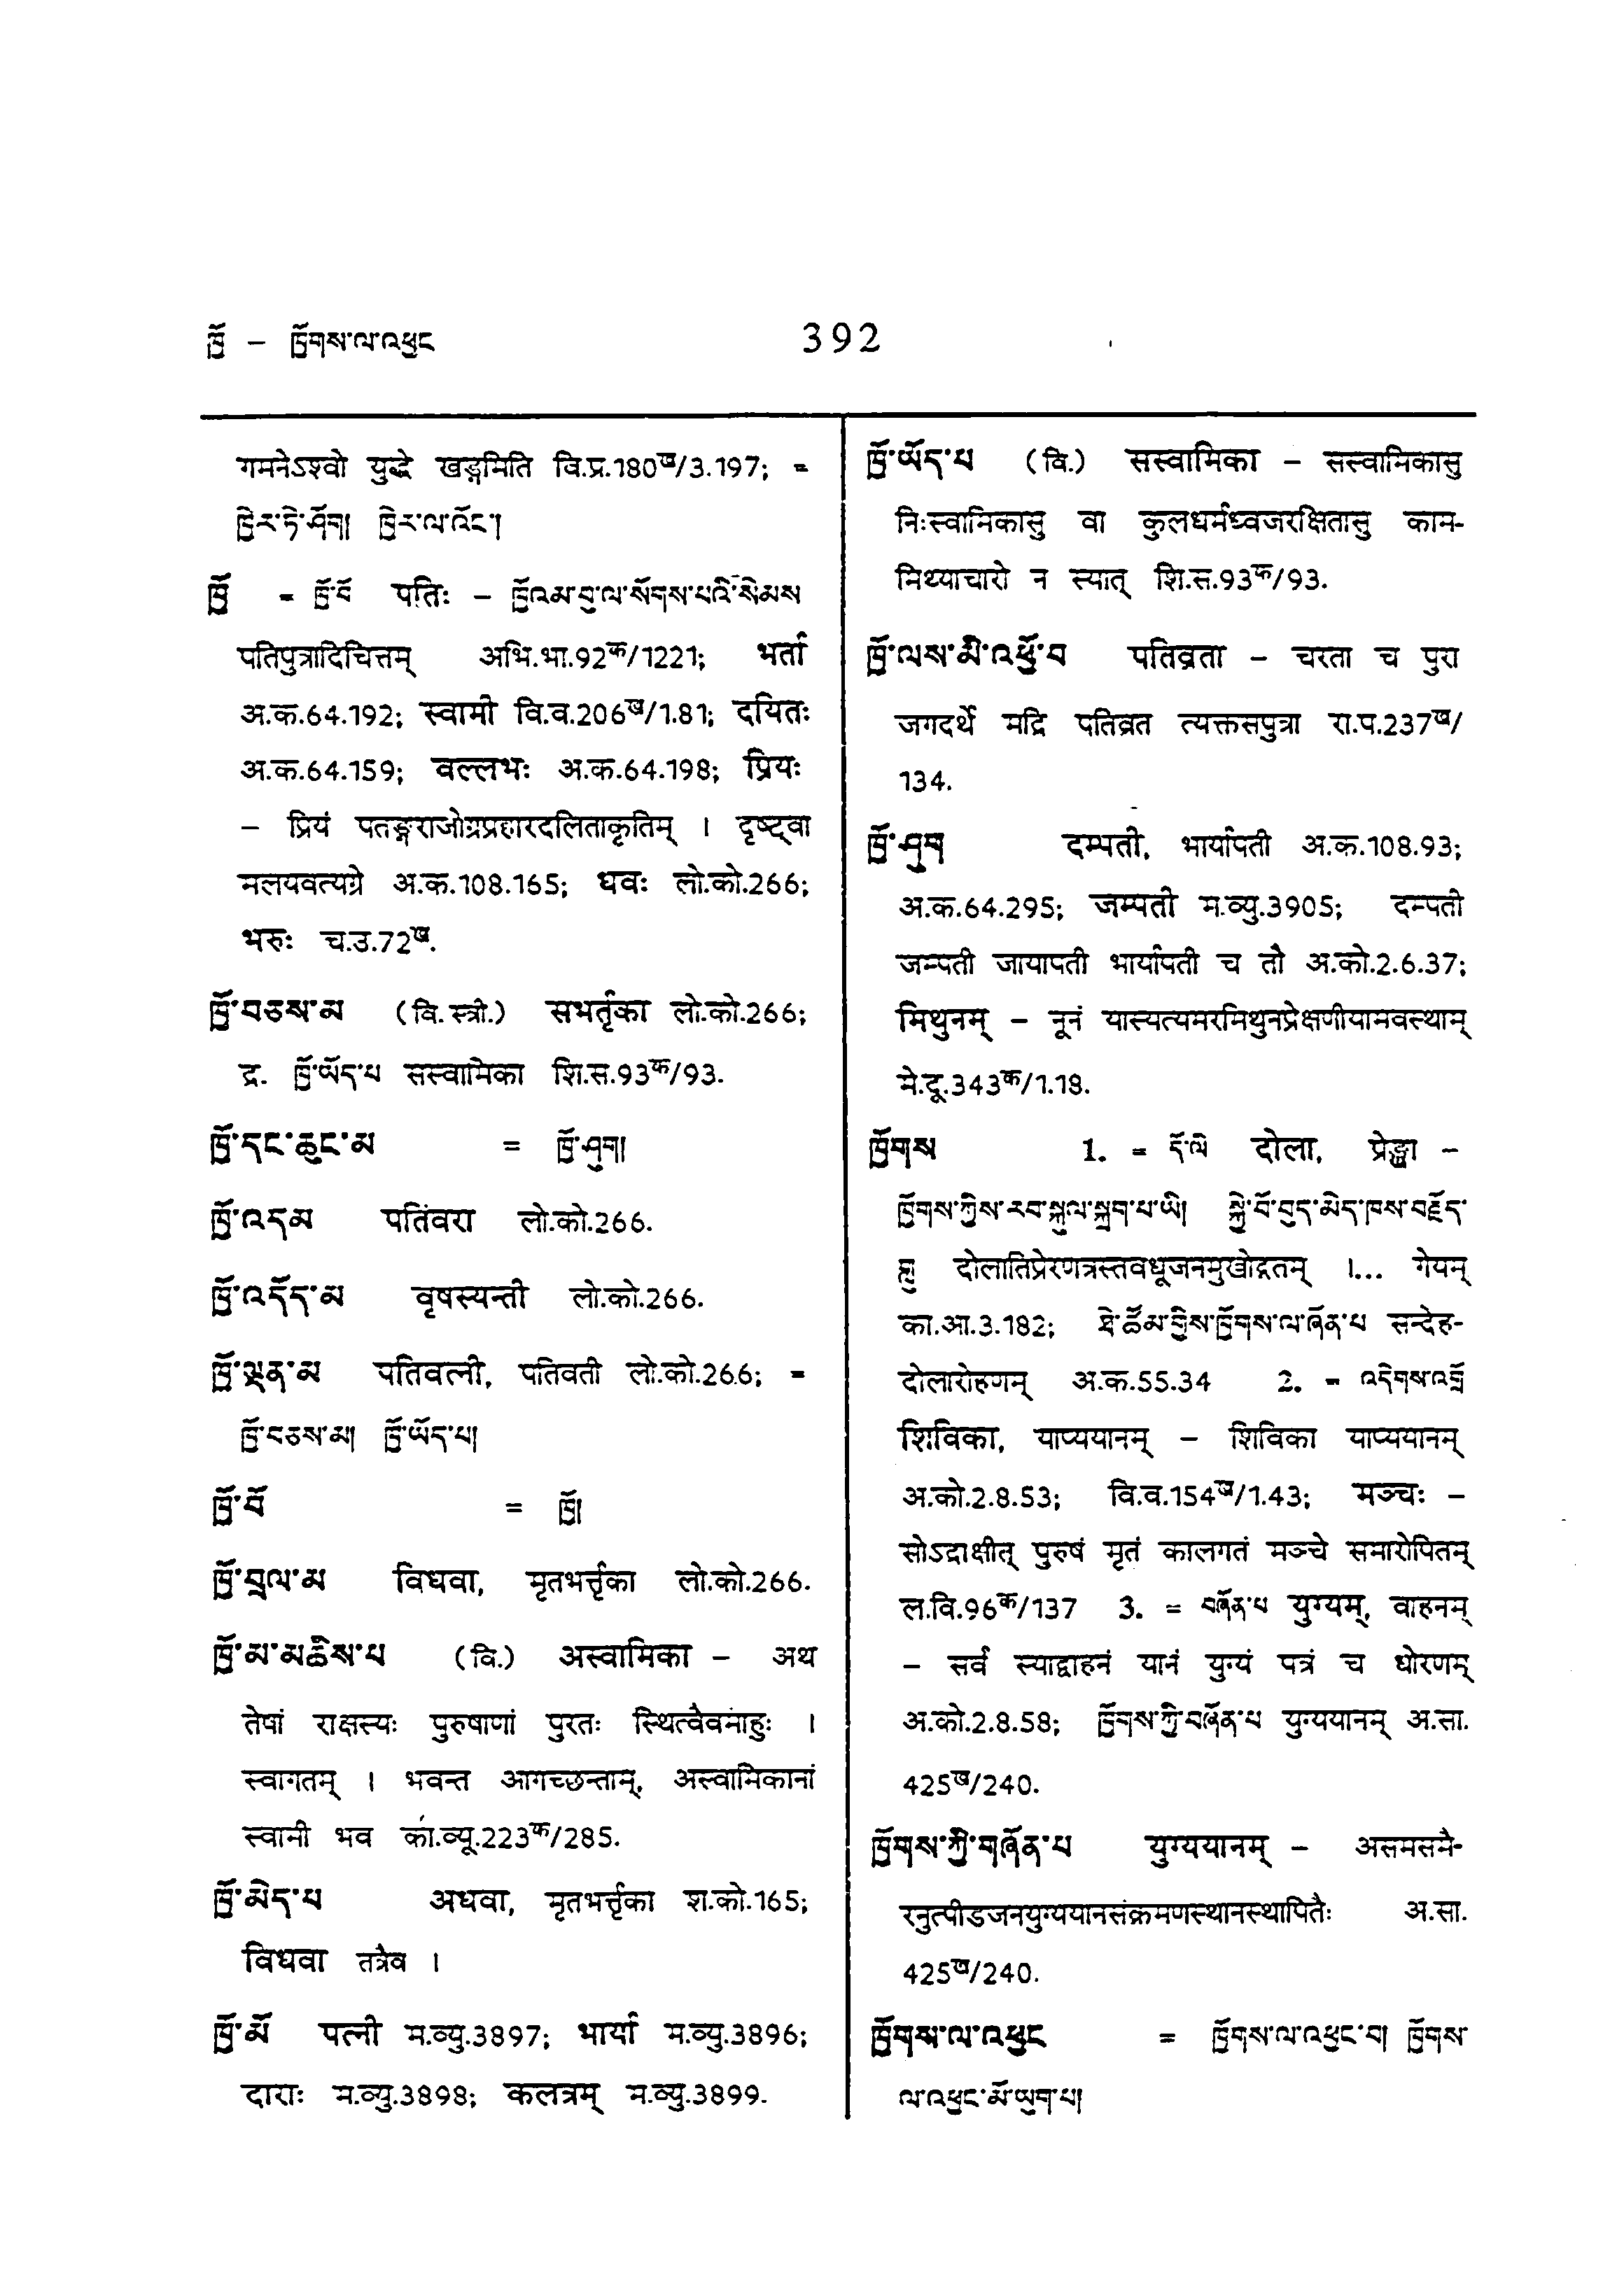 ཁྱོ – ཁྱོགས་ལ་འཕྱང
392
गमनेऽश्वो युद्धे खड्गमिति वि.प्र.180ख/3.197; =
ཁྱེར་ཏེ་ཤོག། ཁྱེར་ལ་འོང་།
ཁྱོ = ཁྱོ་བོ पतिः – ཁྱོའམ་བུ་ལ་སོགས་པའི་སེམས
पतिपुत्रादिचित्तम् अभि.भा.92क/1221; भर्ता
अ.क.64.192; स्वामी वि.व.206ख/1.81; दयितः
अ.क.64.159; वल्लभः अ.क.64.198; प्रियः
– प्रियं पतङ्गराजोग्रप्रहारदलिताकृतिम् । दृष्ट्वा
मलयवत्यग्रे अ.क.108.165; धवः लो.को.266;
भरुः च.उ.72ख.
ཁྱོ་བཅས་མ (वि.स्त्री.) सभर्तृका लो.को.266;
द्र. ཁྱོ་ཡོད་པ सस्वामिका शि.स.93क/93.
ཁྱོ་དང་ཆུང་མ = ཁྱོ་ཤུག།
ཁྱོ་འདམ पतिंवरा लो.को.266.
ཁྱོ་འདོད་མ वृषस्यन्ती लो.को.266.
ཁྱོ་ལྡན་མ पतिवत्नी, पतिवती लो.को.266; =
ཁྱོ་བཅས་མ། ཁྱོ་ཡོད་པ།
ཁྱོ་བོ = ཁྱོ།
ཁྱོ་བྲལ་མ विधवा, मृतभर्त्तृका लो.को.266.
ཁྱོ་མ་མཆིས་པ (वि.) अस्वामिका – अथ
तेषां राक्षस्यः पुरुषाणां पुरतः स्थित्वैवमाहुः ।
स्वागतम् । भवन्त आगच्छन्ताम्, अस्वामिकानां
स्वामी भव का.व्यू.223क/285.
ཁྱོ་མེད་པ अधवा, मृतभर्त्तृका श.को.165;
विधवा तत्रैव ।
ཁྱོ་མོ पत्नी म.व्यु.3897; भार्या म.व्यु.3896;
दाराः म.व्यु.3898; कलत्रम् म.व्यु.3899.
ཁྱོ་ཡོད་པ (वि.) सस्वामिका – सस्वामिकासु
निःस्वामिकासु वा कुलधर्मध्वजरक्षितासु काम-
मिथ्याचारो न स्यात् शि.स.93क/93.
ཁྱོ་ལས་མི་འཕྱོ་བ पतिव्रता – चरता च पुरा
जगदर्थे मद्रि पतिव्रत त्यक्तसपुत्रा रा.प.237ख/
134.
ཁྱོ་ཤུག दम्पती, भार्यापती अ.क.108.93;
अ.क.64.295; जम्पती म.व्यु.3905; दम्पती
जम्पती जायापती भार्यापती च तौ अ.को.2.6.37;
मिथुनम् – नूनं यास्यत्यमरमिथुनप्रेक्षणीयामवस्थाम्
मे.दू.343क/1.18.
ཁྱོགས 1. = དོ་ལི दोला, प्रेङ्खा –
ཁྱོགས་ཀྱིས་རབ་སྐུལ་སྐྲག་པ་ཡི། སྐྱེ་བོ་བུད་མེད་ཁས་བརྗོད་
གླུ दोलातिप्रेरणत्रस्तवधूजनमुखोद्गतम् ।... गेयम्
का.आ.3.182; ཐེ་ཚོམ་གྱིས་ཁྱོགས་ལ་ཞོན་པ सन्देह-
दोलारोहणम् अ.क.55.34 2. = འདེགས་འགྲོ
शिविका, याप्ययानम् – शिविका याप्ययानम्
अ.को.2.8.53; वि.व.154ख/1.43; मञ्चः –
सोऽद्राक्षीत् पुरुषं मृतं कालगतं मञ्चे समारोपितम्
ल.वि.96क/137 3. = བཞོན་པ युग्यम्, वाहनम्
– सर्वं स्याद्वाहनं यानं युग्यं पत्रं च धोरणम्
अ.को.2.8.58; ཁྱོགས་ཀྱི་བཞོན་པ युग्ययानम् अ.सा.
425ख/240.
ཁྱོགས་ཀྱི་གཞོན་པ युग्ययानम् – असमसमै-
रनुत्पीडजनयुग्ययानसंक्रमणस्थानस्थापितैः अ.सा.
425ख/240.
ཁྱོགས་ལ་འཕྱང = ཁྱོགས་ལ་འཕྱང་བ། ཁྱོགས་
ལ་འཕྱང་མོ་ཡུག་པ།